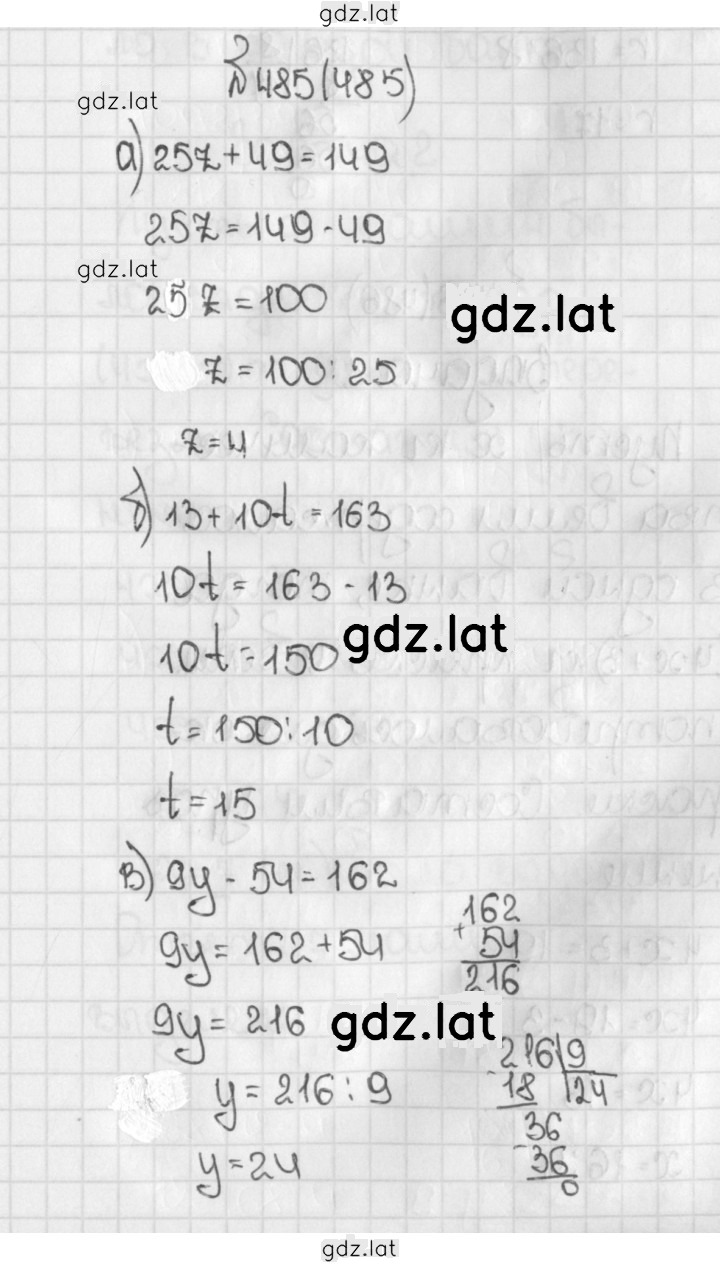 gdz.lat
№485(485)
gdz.lat
а) 25z+49=149
25z=149-49
gdz.lat
25z=100
gdz.lat
z=100:25
z=4
б) 13+10t=163
10t=163-13
10t=150
gdz.lat
t=150:10
t=15
в) 9y-54=162
9y=162+54
162
+ 54
216
9y=216
gdz.lat
y=216:9
y=24
216|9
-18 |24
36
-36
0
gdz.lat